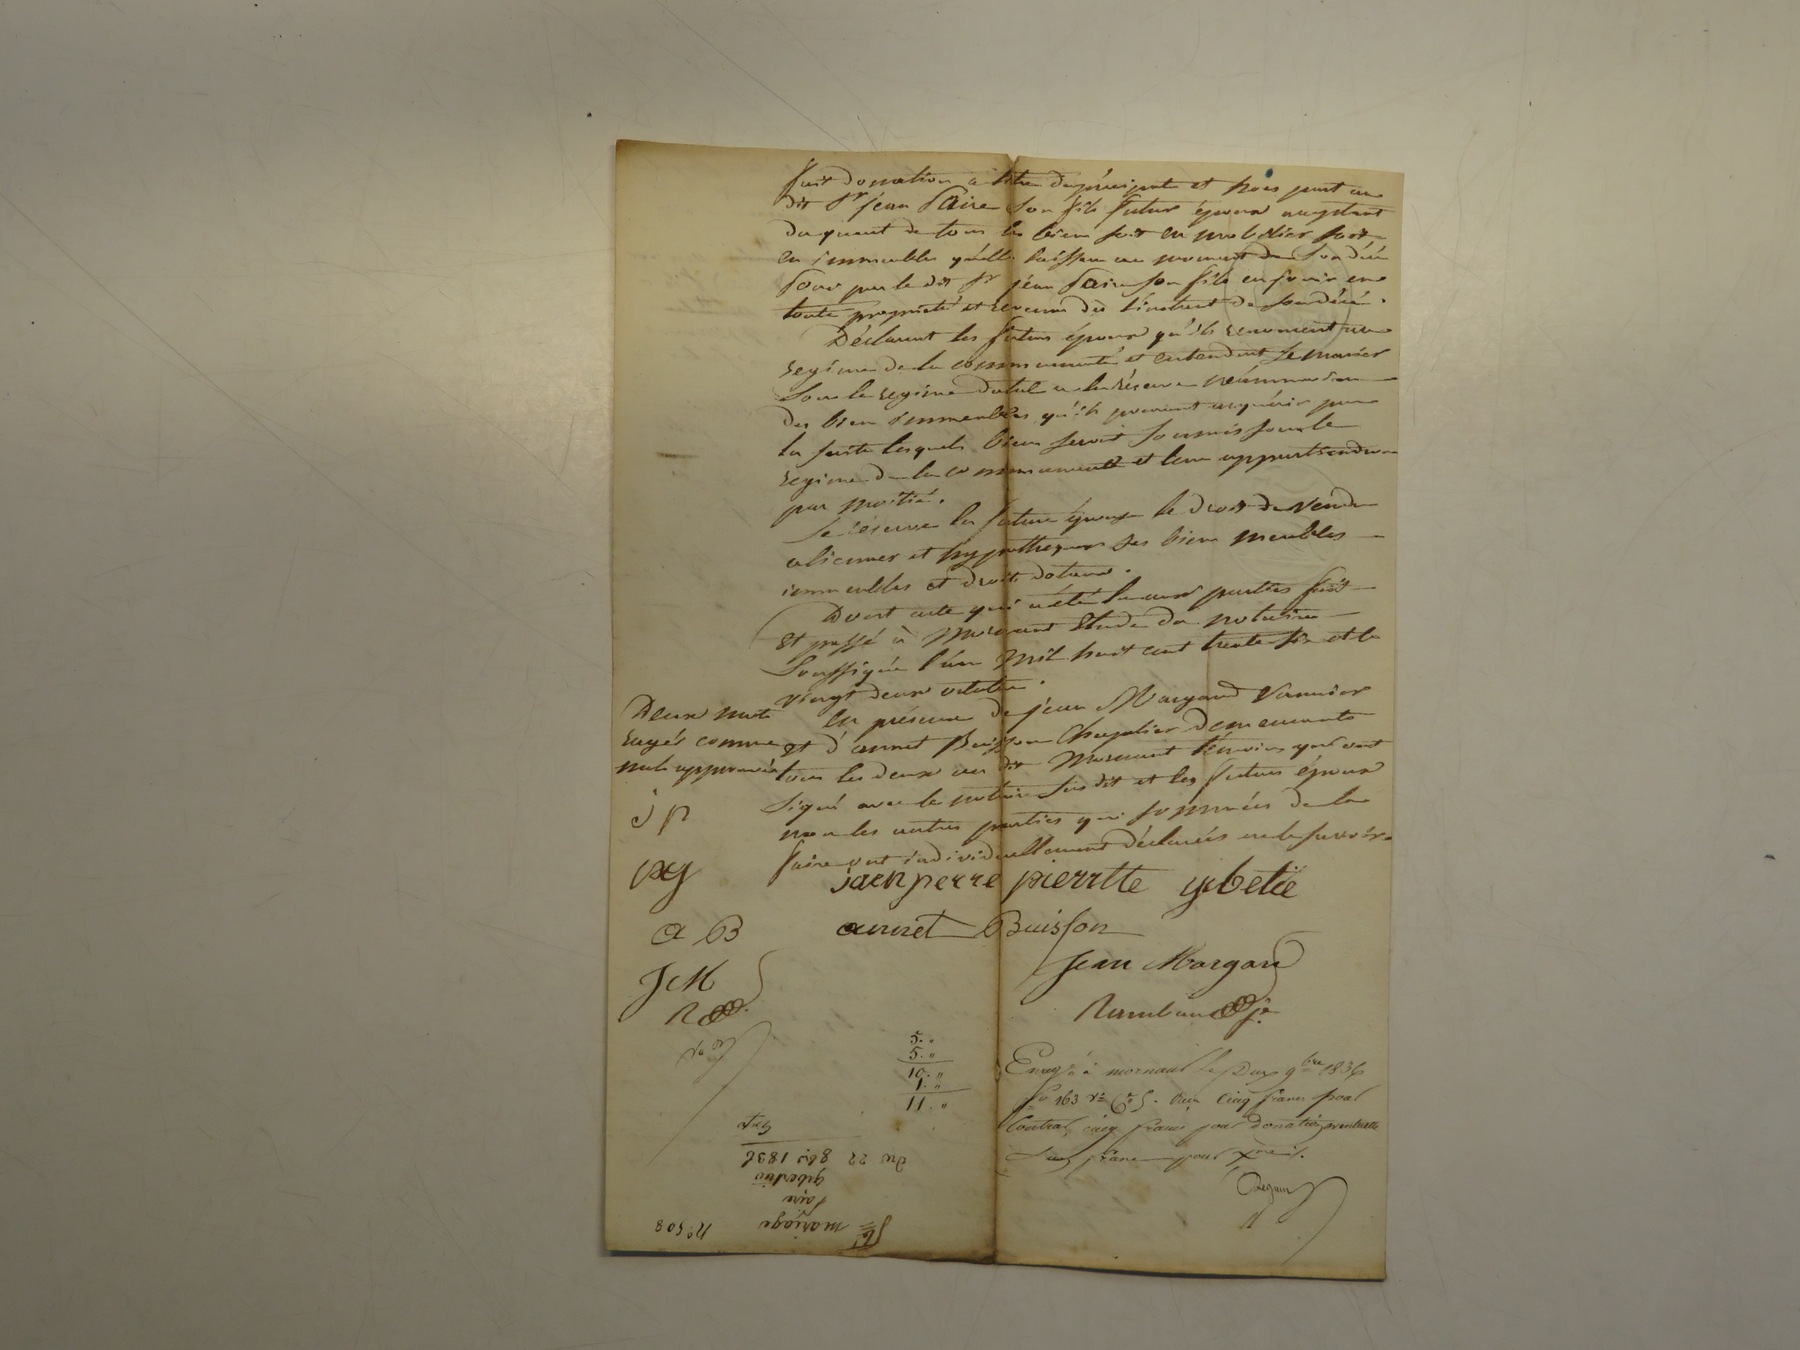 fait donation a titre de préciput et hors part au
dit Sr jean Paire son fils futur époux acceptant
du quart de tous les biens soit en mobilier soit
en immeubles qu'elle laissera au moment de son décè
pour par le dit Sr jean Paire son fils en jouir en
toute propriété et revenu dès l'instant de son décè.
Déclarent les futurs époux qu'ils renoncent au
regime de la communauté et entendent se marier
sous le regime dotal a la réserve néanmoins
des biens immeubles qu'ils pouront acquérir par
la suite lesquels biens seront soumis sous le
regime de la communauté et leur appartiendra
par moitié.
Se réserve la future épouse le droit de vendre
aliener et hypothequer ses biens meubles
immeubles et droits dotaux.
Dont acte qui a été lu aux parties fait
et passé à Mornant Etude du notaire
soussigné l'an mil huit cent trente six et le
vingt deux octobre.
en présence de jean Margand Vannier
et d'annet Buisson Chapelier demeurants
tous les deux au dit Mornant témoins qui ont
signé avec le notaire susdit et les futurs époux
non les autres parties qui sommées de le
faire ont individuellement déclarés ne le savoir
Deux mots
rayés comme
nuls approuvés
j p
pg
a B
J M
R
jaen perre pierrtte gibetié
annet Buisson
Jean Margand
5. "
5. "
10. "
1. "
11. "
Enregé à mornant le Deux 9bre 1836
fo 163 Ro Ces 5. Reçu cinq francs pour
Contrat, cinq francs pour donation éventuelle
& un franc pour Xme.
No 508
mariage
Paire
gibertié
du 22 8bre 1836